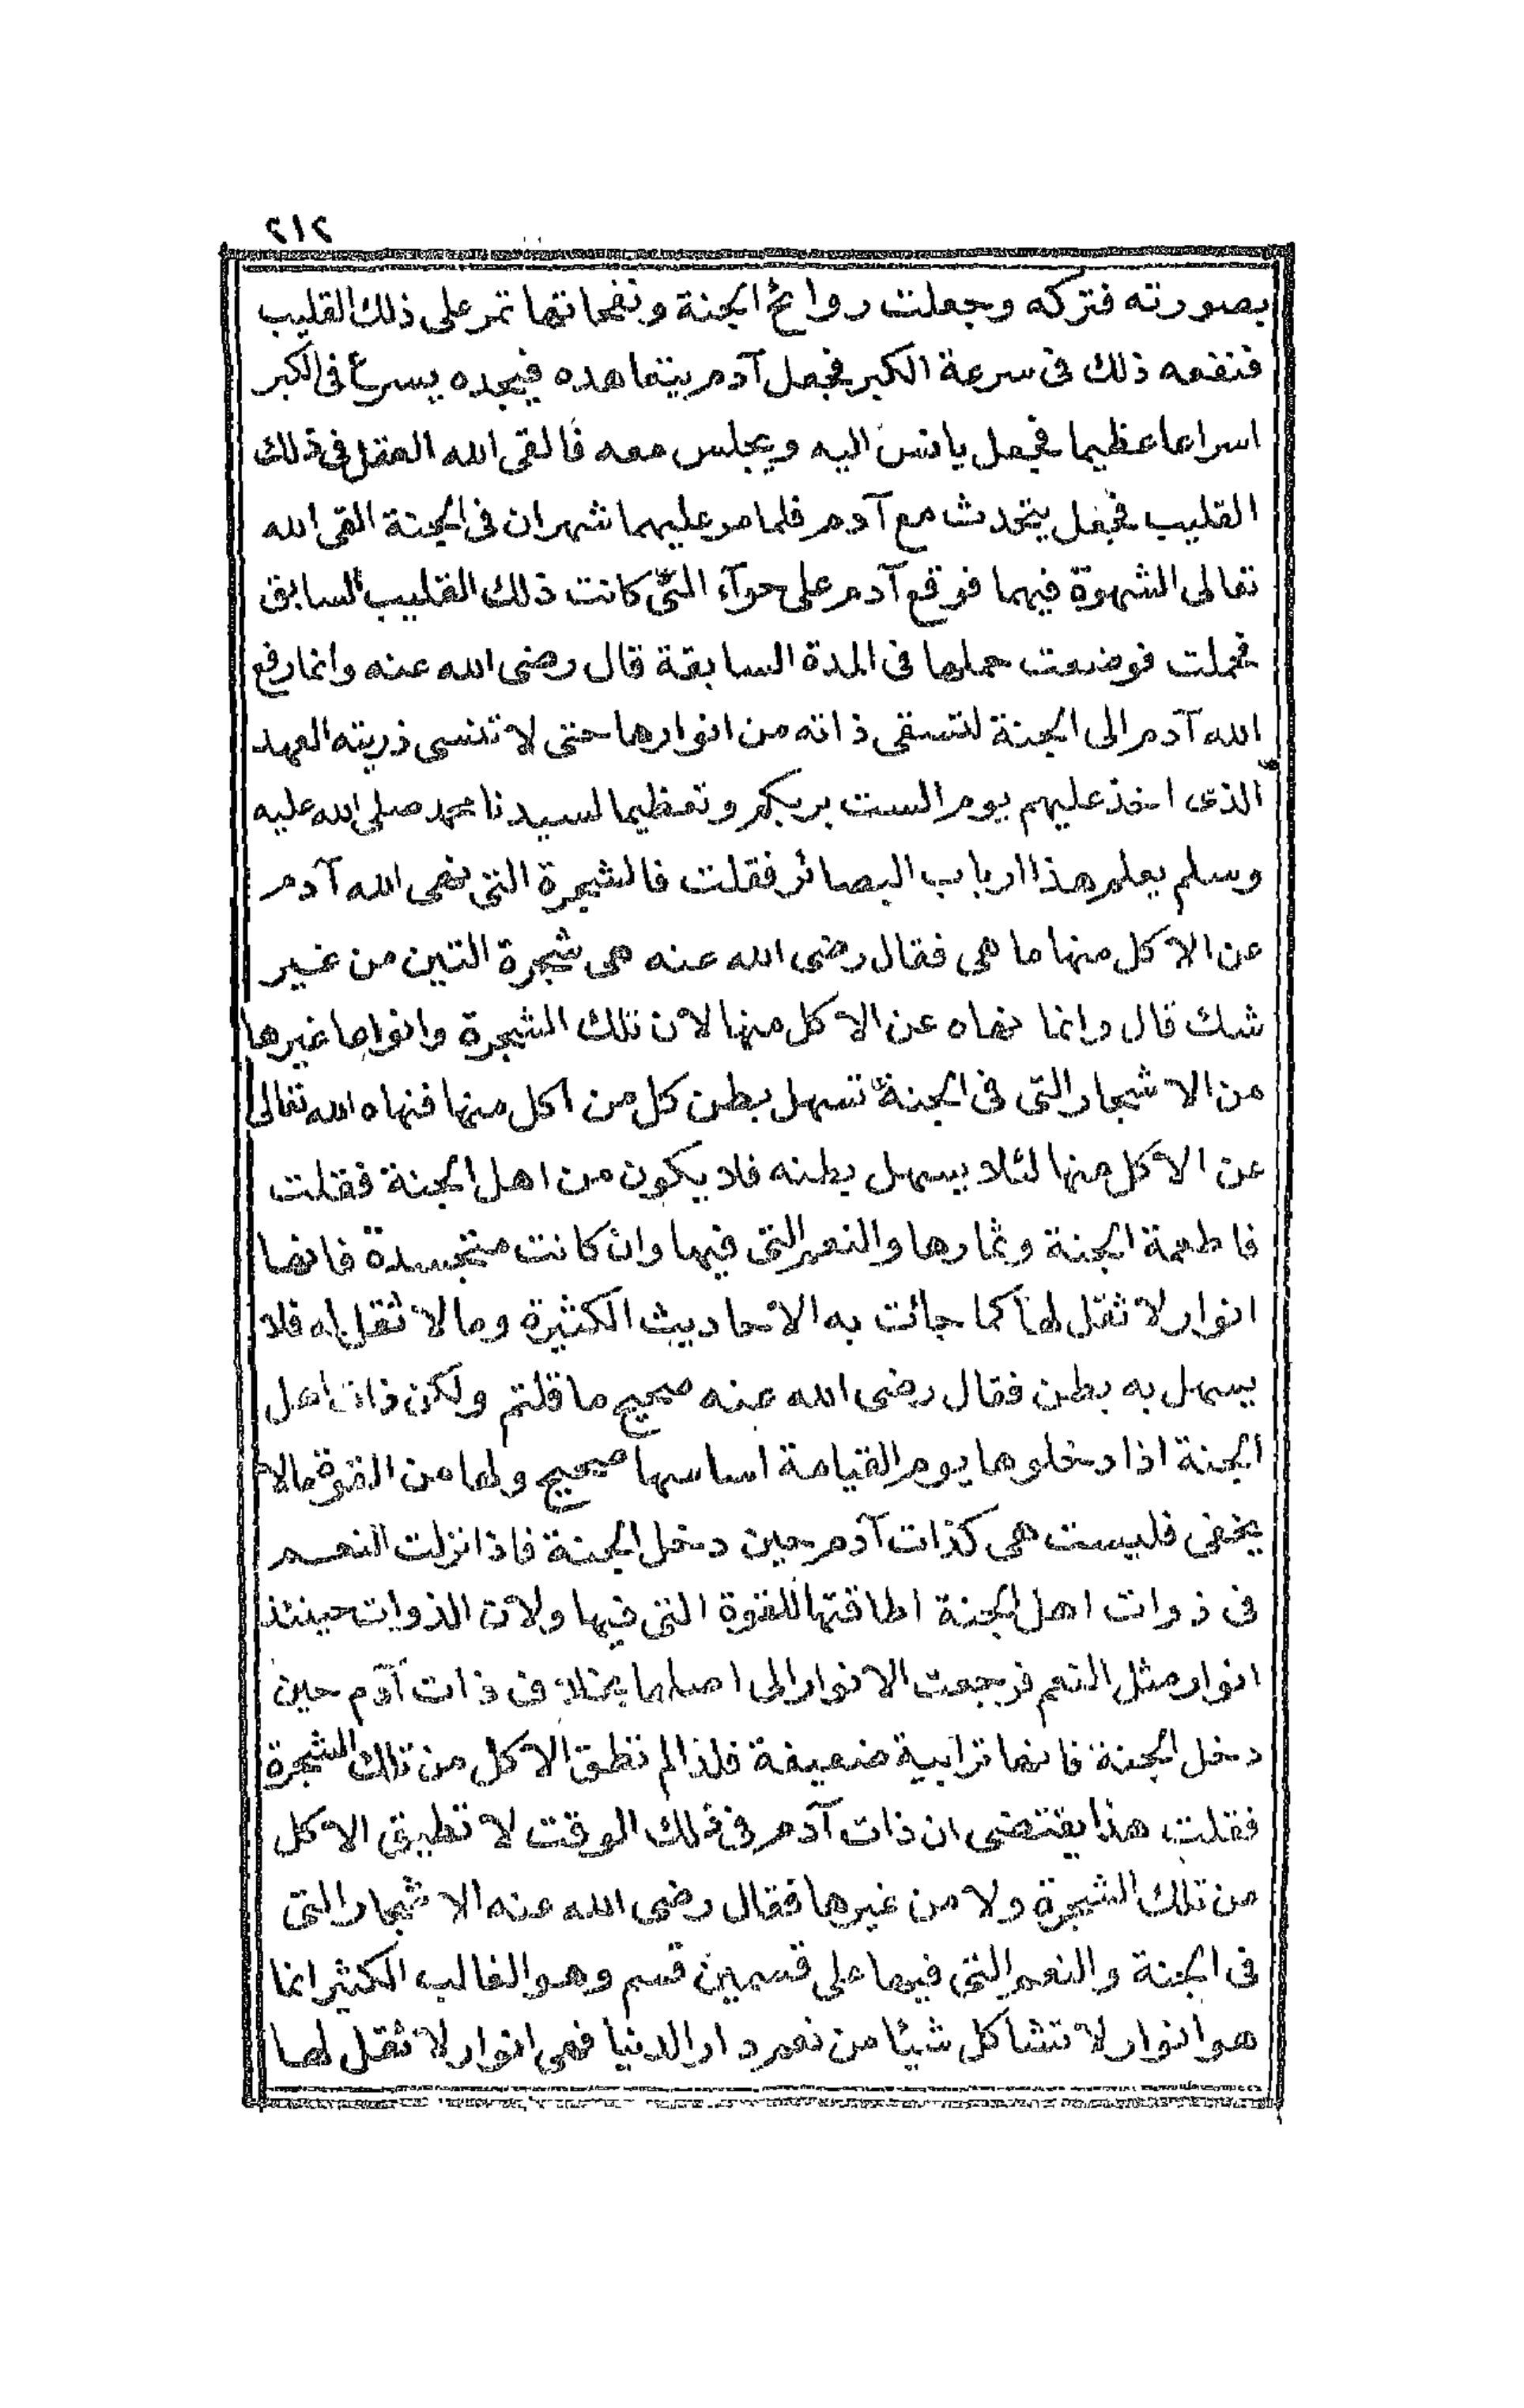 ٢١٢
بصورته فتركه وجعلت روائح الجنة ونفحاتها تمر على ذلك القليب
فنفعه ذلك فى سرعة الكبر فجعل آدم يتعاهده فيجده يسرع فى الكبر
اسراعا عظيما فجعل يانس اليه ويجلس معه فالقى الله العقل فى ذلك
القليب فجعل يتحدث مع آدم فلما مر عليهما شهران فى الجنة القى الله
تعالى الشهوة فيهما فوقع آدم على حوآء التى كانت ذلك القليب السابق
فحملت فوضعت حملها فى المدة السابقة قال رضى الله عنه وانما رفع
الله آدم الى الجنة لتسقى ذاته من انوارها حتى لا تنسى ذريته العهد
الذى اخذ عليهم يوم الست بربكم وتعظيما لسيدنا محمد صلى الله عليه
وسلم يعلم هذا ارباب البصائر فقلت فالشجرة التى نهى الله آدم
عن الاكل منها ما هى فقال رضى الله عنه هى شجرة التين من غير
شك قال وانما نهاه عن الاكل منها لان تلك الشجرة وانواعا غيرها
من الاشجار التى فى الجنة تسهل بطن كل من اكل منها فنهاه الله تعالى
عن الاكل منها لئلا يسهل بطنه فلا يكون من اهل الجنة فقلت
فاطعمة الجنة وثمارها والنعم التى فيها وان كانت متجسدة فانها
انوار لا ثقل لها كما جائت به الاحاديث الكثيرة وما لا ثقل له فلا
يسهل به بطن فقال رضى الله عنه صحيح ما قلتم ولكن ذات اهل
الجنة اذا دخلوها يوم القيامة اساسها صحيح ولها من القوة مالا
يخفى فليست هى كذات آدم حين دخل الجنة فاذا نزلت النعم
فى ذوات اهل الجنة اطاقتها للقوة التى فيها ولان الذوات حينئذ
انوار مثل النعم فرجعت الانوار الى اصلها بخلاف ذات آدم حين
دخل الجنة فانها ترابية ضعيفة فلذا لم تطق الاكل من تلك الشجرة
فقلت هذا يقتضى ان ذات آدم فى ذلك الوقت لا تطيق الاكل
من تلك الشجرة ولا من غيرها فقال رضى الله عنه الاشجار التى
فى الجنة والنعم التى فيها على قسمين قسم وهو الغالب الكثير انما
هو انوار لا تشاكل شيئا من نعم دار الدنيا فهى انوار لا ثقل لها